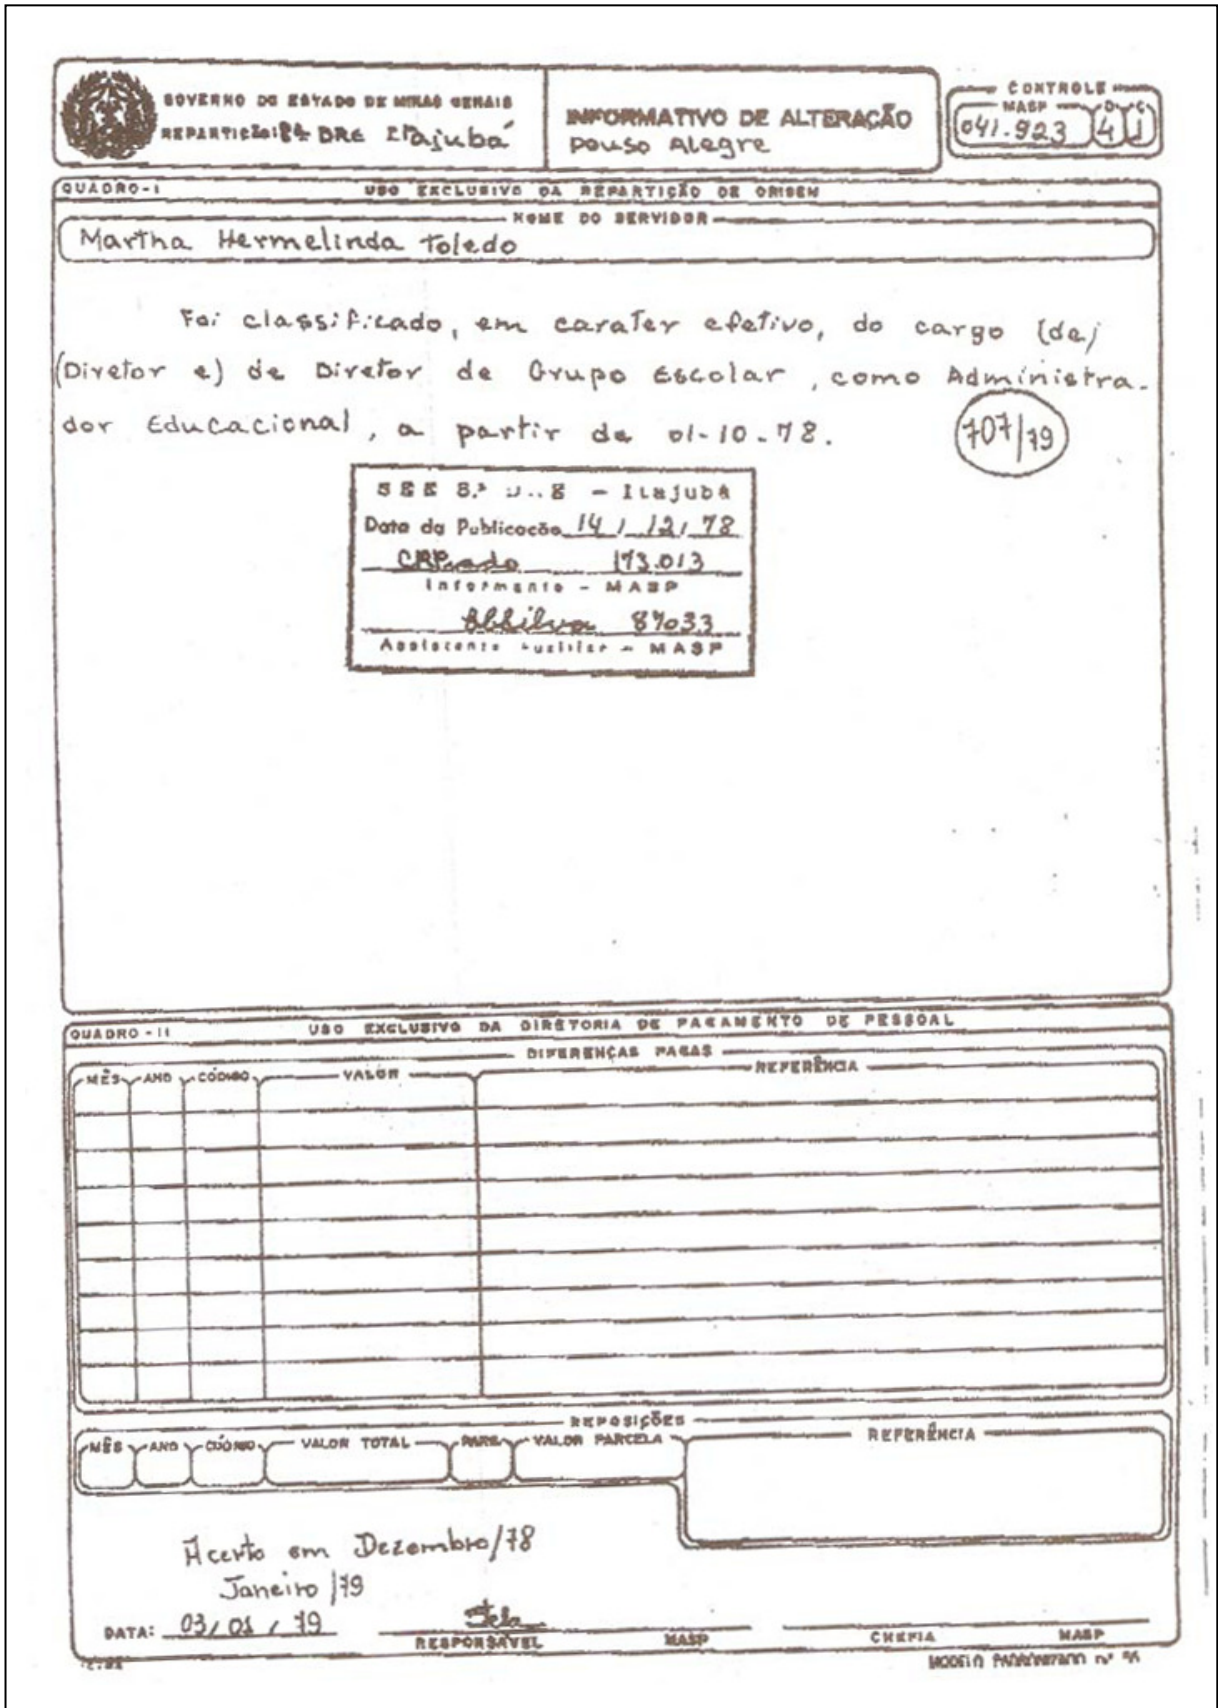 GOVERNO DO ESTADO DE MINAS GERAIS
REPARTIÇÃO: DRE Itajubá
INFORMATIVO DE ALTERAÇÃO
Pouso Alegre
CONTROLE
MASP D C
041.923 4 J
QUADRO-I USO EXCLUSIVO DA REPARTIÇÃO DE ORIGEM
NOME DO SERVIDOR
Martha Hermelinda Toledo
Foi classificado, em carater efetivo, do cargo (de)
(Diretor e) de Diretor de Grupo Escolar, como Administra-
dor Educacional, a partir de 01-10-78.
707/79
SEE 8.ª - Itajubá
Data da Publicação 14 / 12 / 78
CRPrado 173.013
Informante - MASP
87033
Assistente Auxiliar - MASP
QUADRO - II USO EXCLUSIVO DA DIRETORIA DE PAGAMENTO DE PESSOAL
DIFERENÇAS PAGAS
MÊS ANO CÓDIGO VALOR REFERÊNCIA
REPOSIÇÕES
MÊS ANO CÓDIGO VALOR TOTAL PARC. VALOR PARCELA REFERÊNCIA
Acerto em Dezembro/78
Janeiro/79
DATA: 03/01/79
RESPONSÁVEL MASP CHEFIA MASP
MODELO PADRONIZADO nº